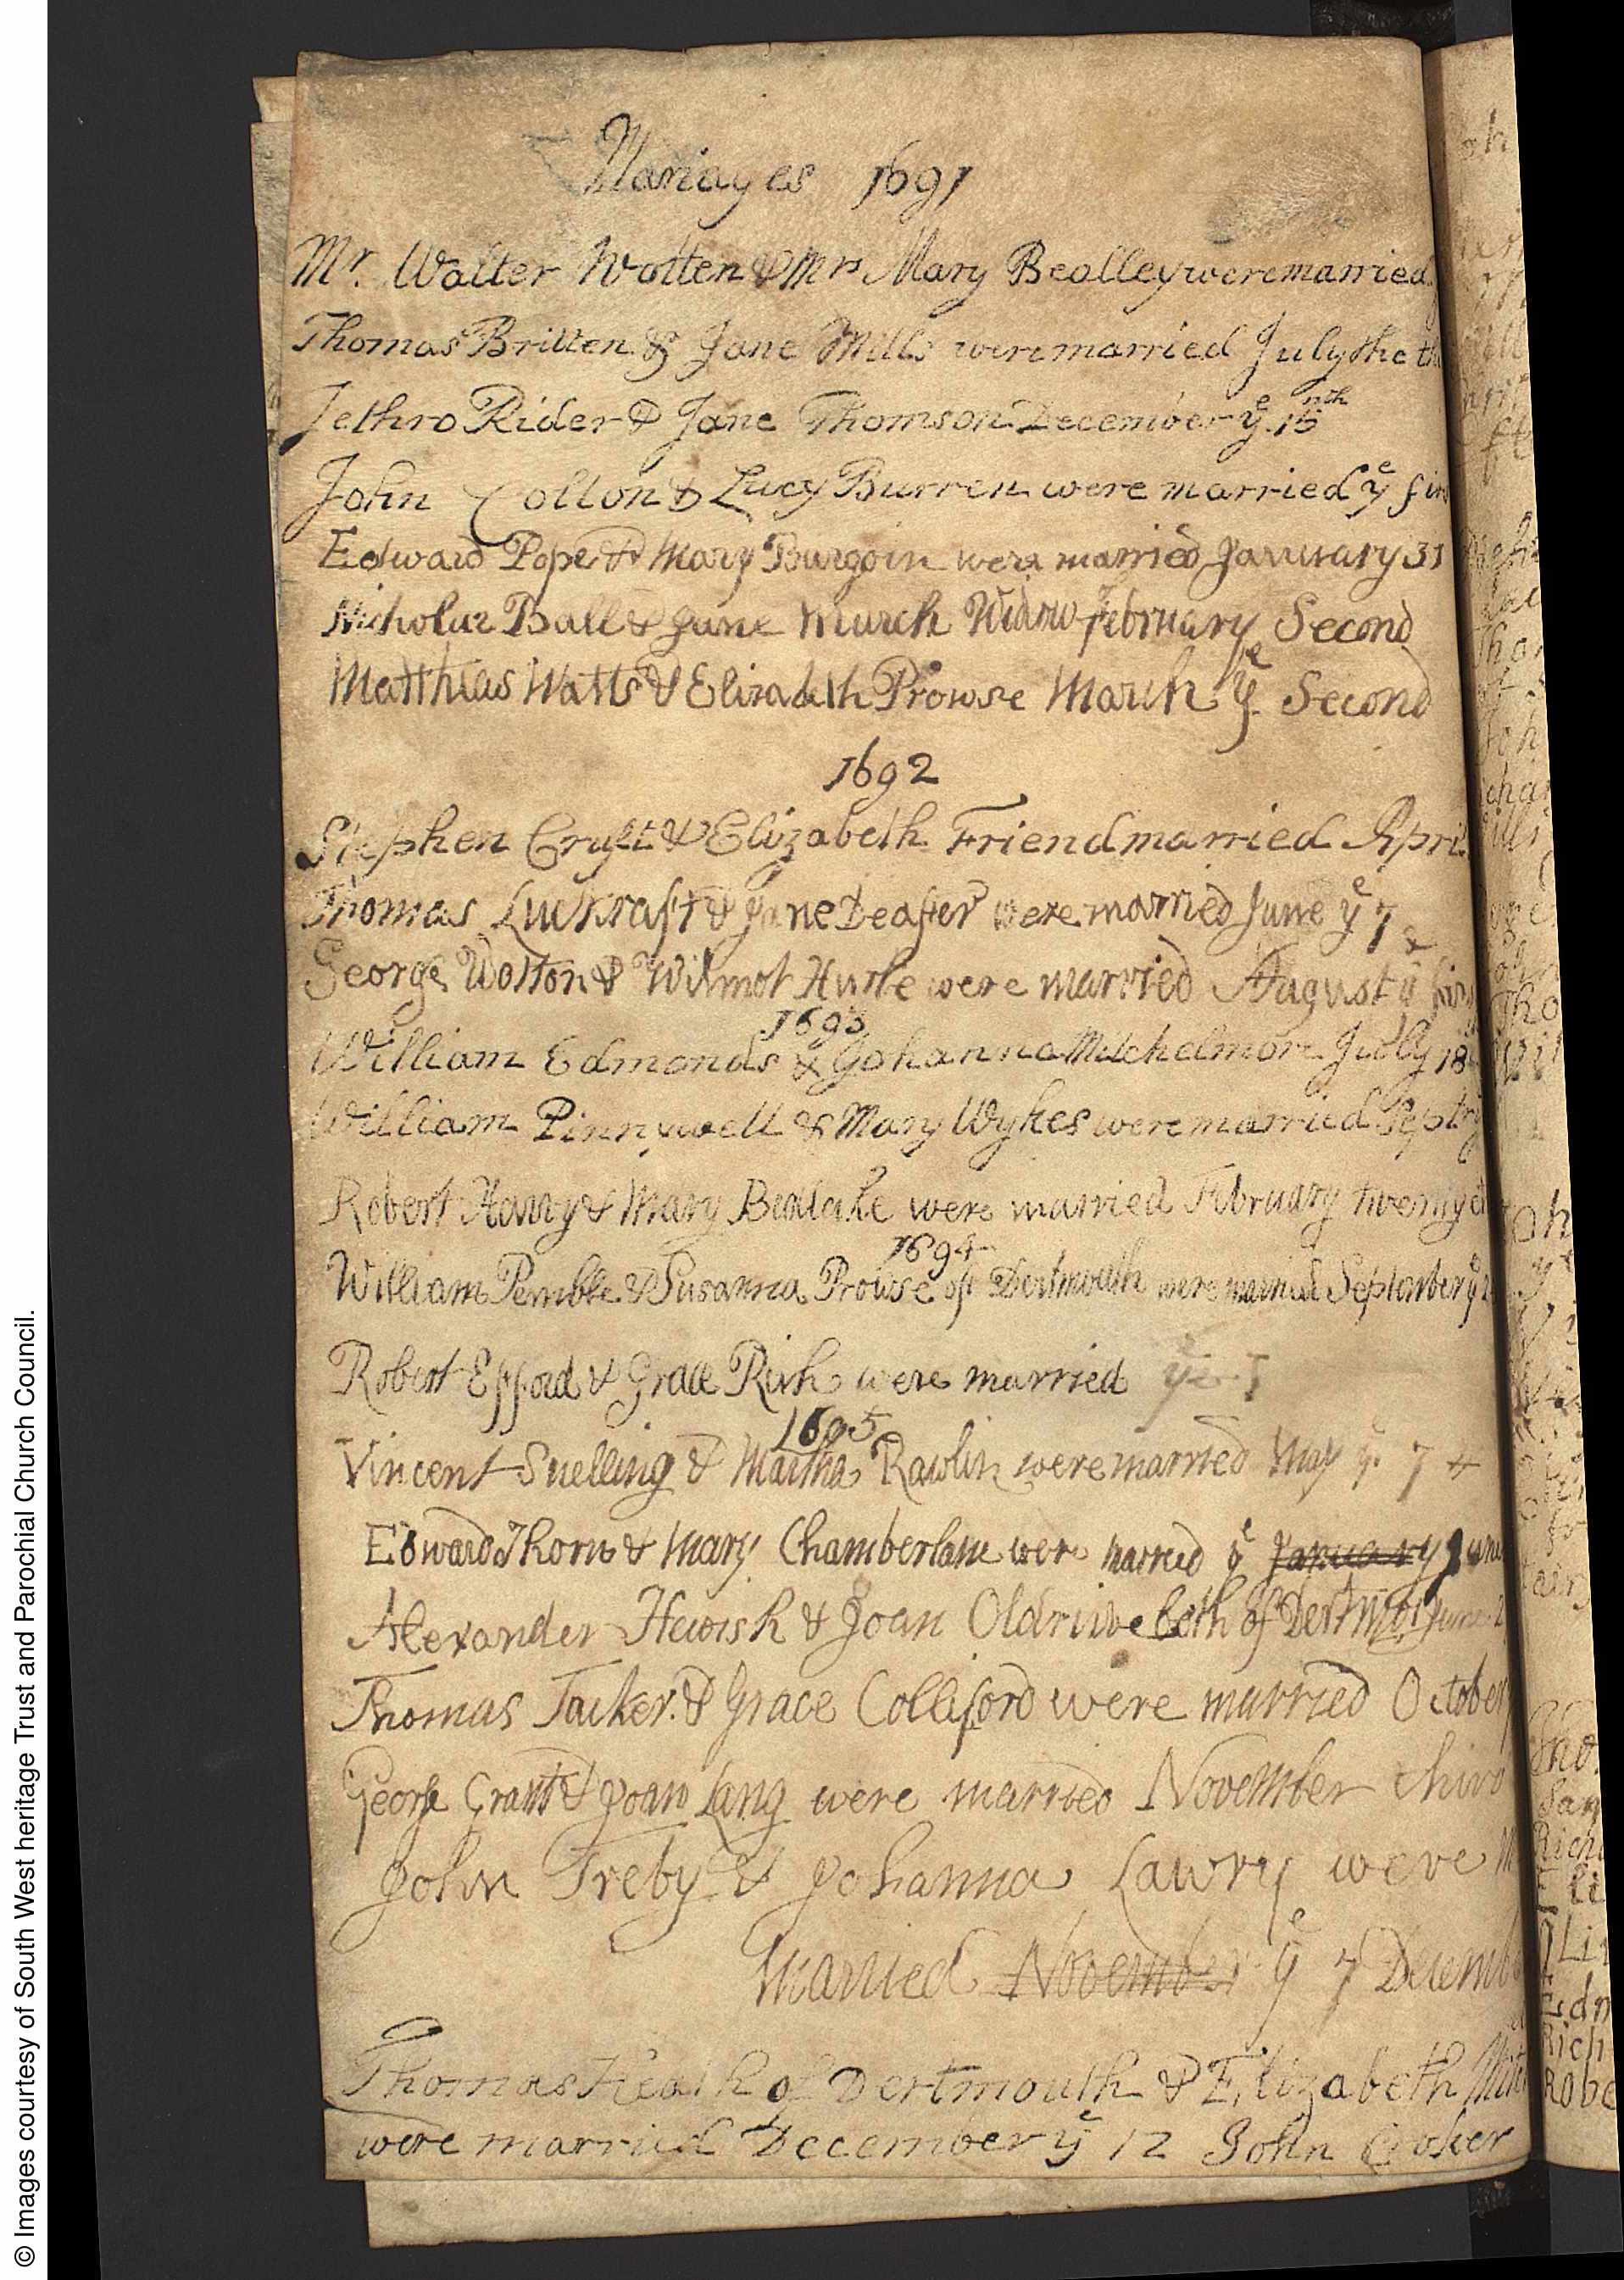 Mariages 1691
Mr. Walter Wotten & Mrs Mary Bealley were married
Thomas Britten & Jane Mills were married July the th
Jethro Rider & Jane Thomson December ye 15nth
John Collon & Lucy Burren were married ye firs
Edward Pope & Mary Burgoin were married January 31
Nicholas Ball & Jane March Widow February Second
Matthias Watts & Elizabeth Prowse March ye Second
1692
Stephen Cruft & Elizabeth Friend married April
Thomas Luckraft & Jane Deafter were married June ye 7
George Wotton & Wilmot Husle were married August ye firs
1693
William Edmonds & Johanna Mitchelmore July 18
William Pinnywell & Mary Wykes were married Septr
Robert Harry & Mary Beallahe were married February twenty
1694
William Pemble & Susanna Prowse of Dertmouth were married September ye
Robert Efford & Grace Rich were married ye
1695
Vincent Snelling & Martha Rawlin were married May ye 7
Edward Thorn & Mary Chamberlane were married ye January June
Alexander Hewish & Joan Oldrive both of Dertmo June
Thomas Tucker & Grace Colliford were married October
George Grant & Joan Lang were married November third
John Treby & Johanna Lawry were M
Married November ye 7 Decemb
Thomas Heath of Dertmouth & Elizabeth
were married December ye 12 John Croker
© Images courtesy of South West heritage Trust and Parochial Church Council.